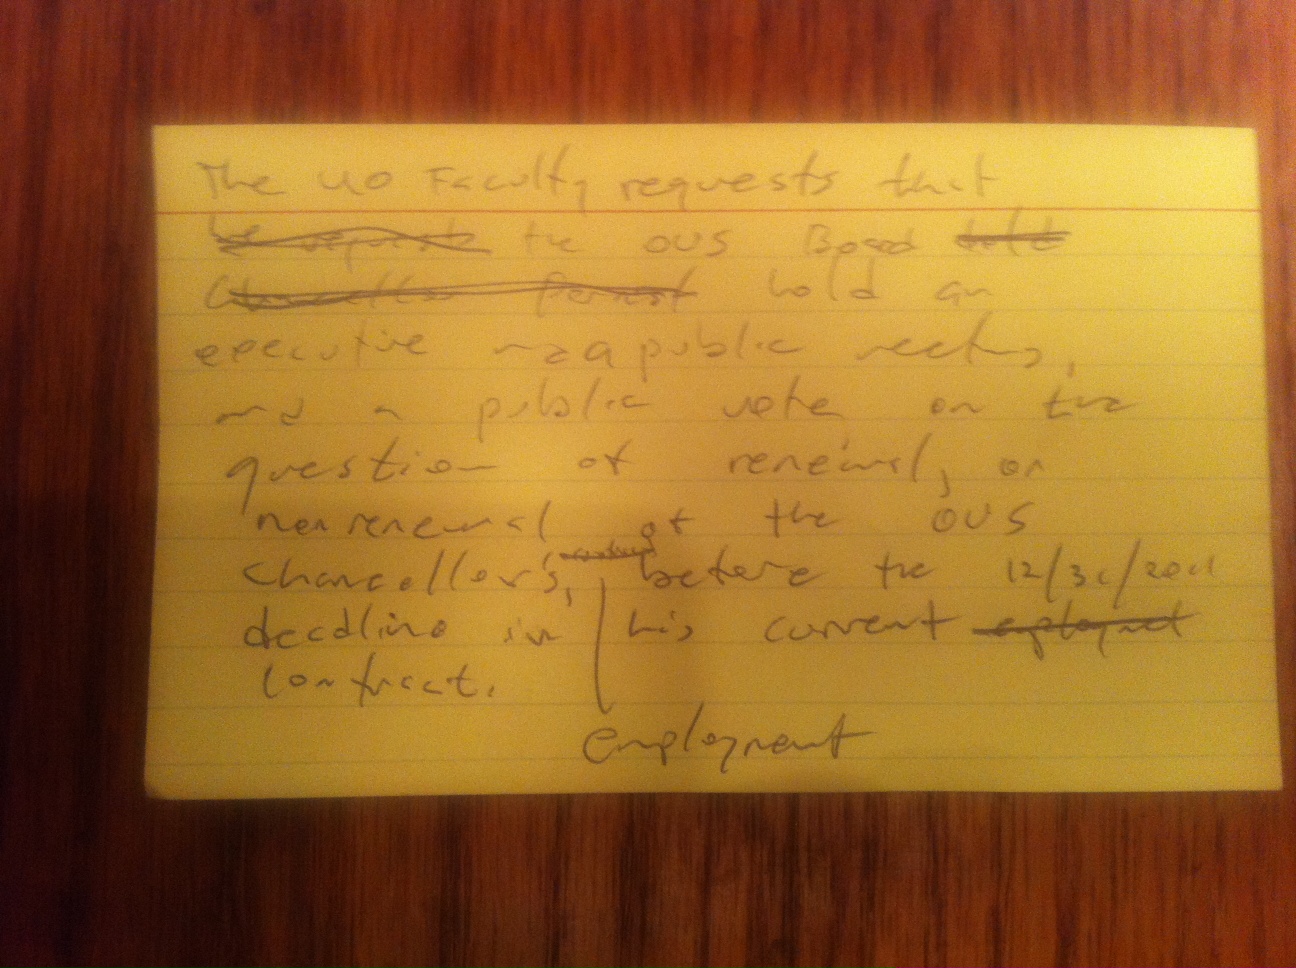 The UO Faculty requests that
the OUS Board
hold an
executive public meeting,
and a public vote on the
question of renewal, or
nonrenewal of the OUS
Chancellor's, before the 12/31/2011
deadline in his current
contract.
employment